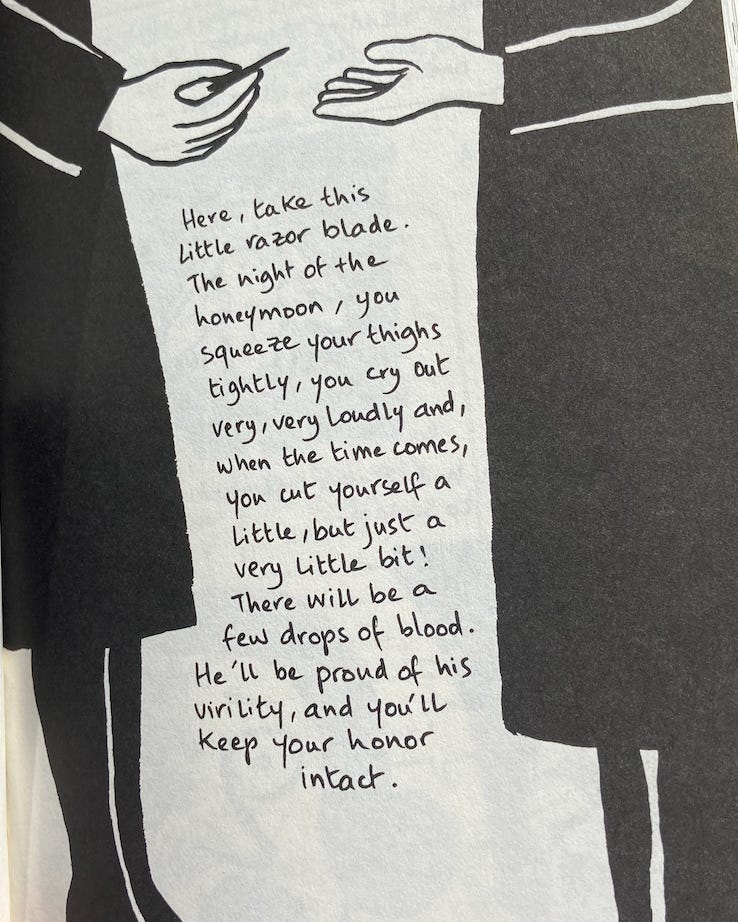 Here, take this
little razor blade.
The night of the
honeymoon, you
squeeze your thighs
tightly, you cry out
very, very loudly and,
when the time comes,
you cut yourself a
little, but just a
very little bit!
There will be a
few drops of blood.
He'll be proud of his
virility, and you'll
keep your honor
intact.